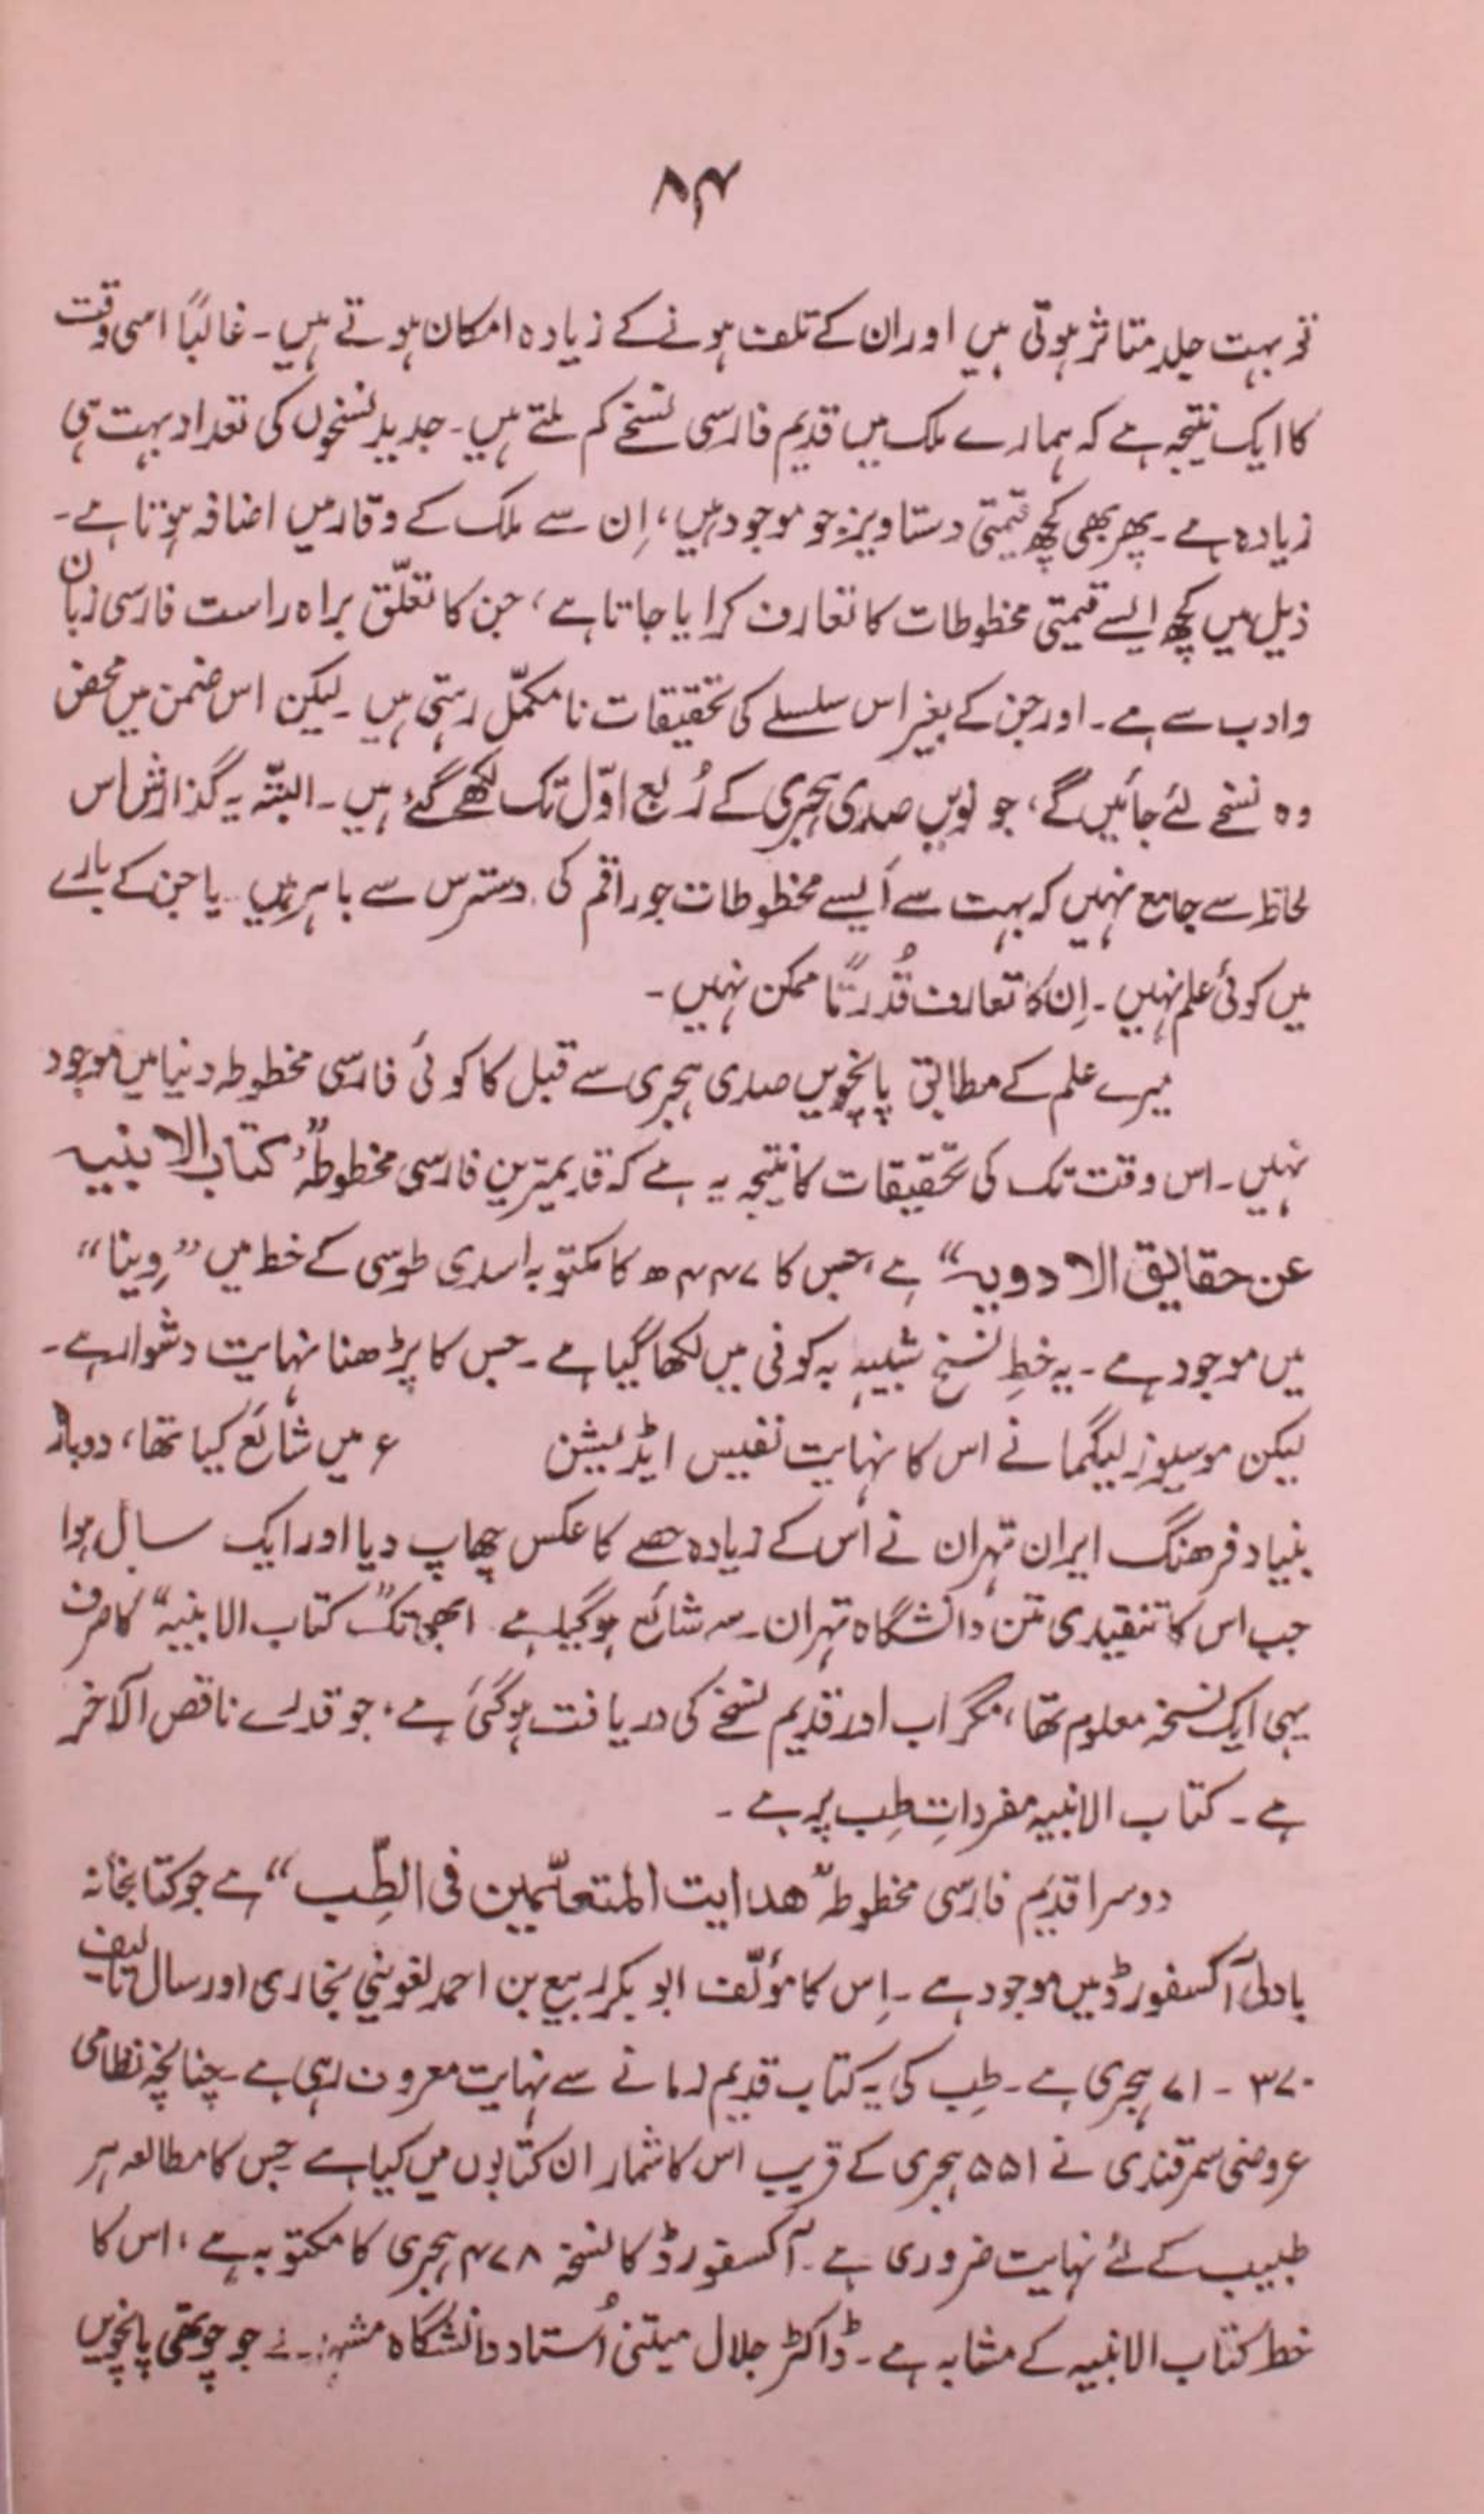 ۸۴
تو بہت جلد متاثر ہوتی ہیں اور ان کے تلف ہونے کے زیادہ امکان ہوتے ہیں۔ غالباً اسی وقت
کا ایک نتیجہ ہے کہ ہمارے ملک میں قدیم فارسی نسخے کم ملتے ہیں۔ جدید نسخوں کی تعداد بہت ہی
زیادہ ہے۔ پھر بھی کچھ قیمتی دستاویز جو موجود ہیں، اِن سے ملک کے وقار میں اضافہ ہوتا ہے۔
ذیل میں کچھ ایسے قیمتی مخطوطات کا تعارف کرایا جاتا ہے، جن کا تعلّق براہ راست فارسی زبان
و ادب سے ہے۔ اور جن کے بغیر اس سلسلے کی تحقیقات نامکمّل رہتی ہیں۔ لیکن اس ضمن میں محض
وہ نسخے لئے جائیں گے، جو نویں صدی ہجری کے رُبع اوّل تک لکھے گئے ہیں۔ البتّہ یہ گذارش اس
لحاظ سے جامع نہیں کہ بہت سے اَیسے مخطوطات جو راقم کی دسترس سے باہر ہیں۔ یا جن کے بارے
میں کوئی علم نہیں۔ اِن کا تعارف قُدرتًا ممکن نہیں۔
میرے علم کے مطابق پانچویں صدی ہجری سے قبل کا کوئی فارسی مخطوطہ دنیا میں موجود
نہیں۔ اس وقت تک کی تحقیقات کا نتیجہ یہ ہے کہ قدیمترین فارسی مخطوطہ ”کتاب الابنیہ
عن حقایق الادویہ“ ہے، جس کا ۴۴۷ھ کا مکتوبہ اسدی طوسی کے خط میں ”وِینا“
میں موجود ہے۔ یہ خطِ نسخ شبیہ بہ کوفی میں لکھا گیا ہے۔ جس کا پڑھنا نہایت دشوار ہے۔
لیکن موسیو زلیگما نے اس کا نہایت نفیس ایڈیشن ء میں شائع کیا تھا، دوبارہ
بنیاد فرھنگ ایران تہران نے اُس کے زیادہ حصے کا عکس چھاپ دیا اور ایک سال ہوا
جب اس کا تنقیدی متن دانشگاہ تہران سے شائع ہوگیا ہے۔ ابھی تک ”کتاب الابنیہ“ کا صرف
یہی ایک نسخہ معلوم تھا، مگر اب اور قدیم نسخے کی دریافت ہوگئی ہے، جو قدرے ناقص الآخر
ہے۔ کتاب الابنیہ مفرداتِ طِب پر ہے۔
دوسرا قدیم فارسی مخطوطہ ”ھدایت المتعلّمین فی الطِّب“ ہے جو کتابخانہ
بادلی آکسفورڈ میں موجود ہے۔ اِس کا مؤلّف ابو بکر ربیع بن احمد لغوینی بخاری اور سال تالیف
۳۷۰ - ۷۱ ہجری ہے۔ طِب کی یہ کتاب قدیم زمانے سے نہایت معروف رہی ہے۔ چنانچہ نظامی
عروضی سمرقندی نے ۵۵۱ ہجری کے قریب اس کا شمار ان کتابوں میں کیا ہے جس کا مطالعہ ہر
طبیب کے لئے نہایت ضروری ہے۔ آکسفورڈ کا نسخہ ۴۷۸ ہجری کا مکتوبہ ہے، اس کا
خط کتاب الابنیہ کے مشابہ ہے۔ ڈاکٹر جلال میتنی اُستاد دانشگاہ مشہد نے جو چوتھی پانچویں